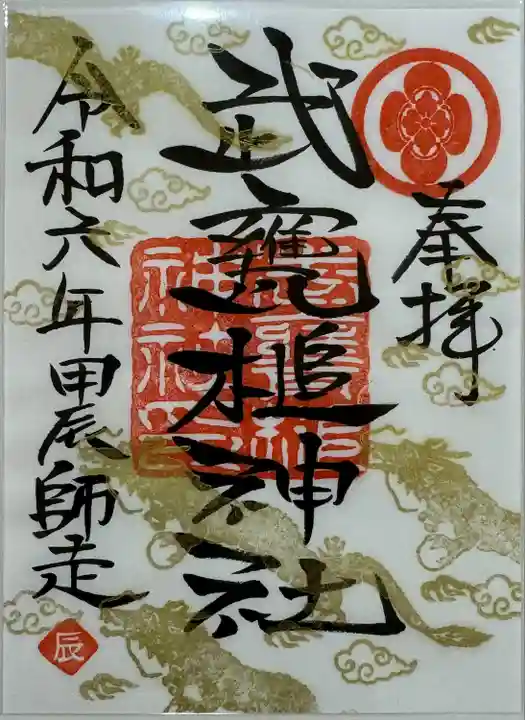 奉拝
武甕槌神社
令和六年甲辰師走
辰